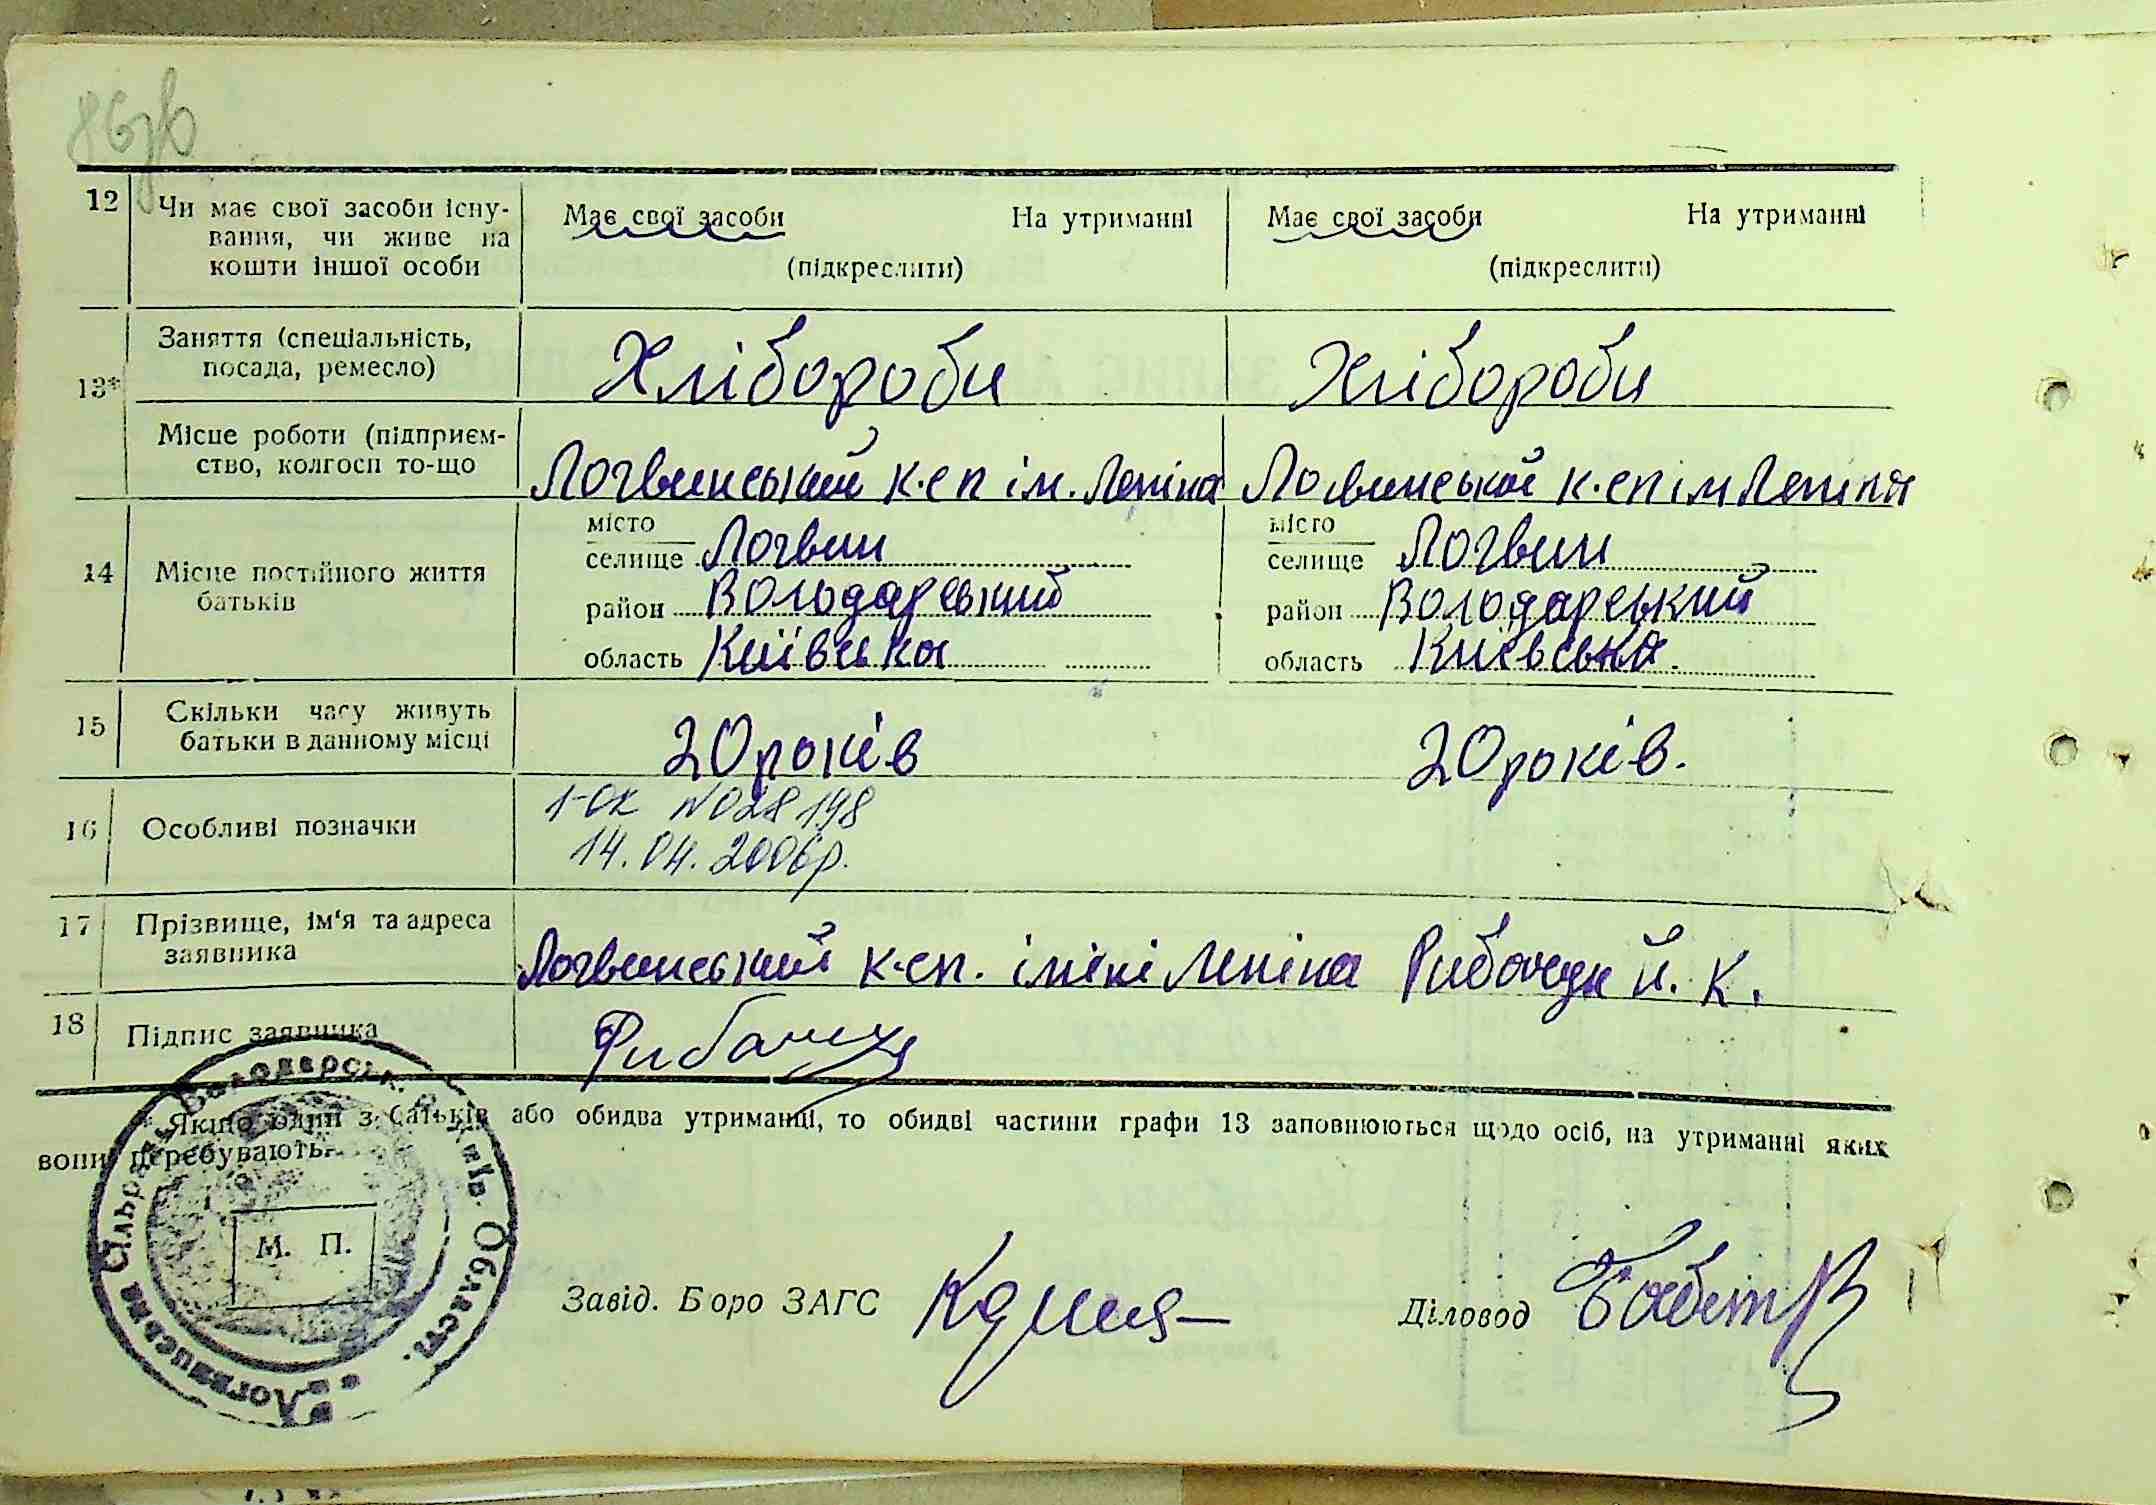 86зв
12 Чи має свої засоби існу-
вання, чи живе на
кошти іншої особи
Має свої засоби На утриманні
(підкреслити)
Має свої засоби На утриманні
(підкреслити)
13* Заняття (спеціальність,
посада, ремесло)
Хлібороби Хлібороби
Місце роботи (підприєм-
ство, колгосп то-що
Логвинський к-сп ім. Леніна Логвинський к-сп ім Леніна
14 Місце постійного життя
батьків
місто
селище Логвин
район Володарський
область Київська
місто
селище Логвин
район Володарський
область Київська.
15 Скільки часу живуть
батьки в данному місці
20 років 20 років.
16 Особливі позначки
1-ок N028198
14.04.2006р.
17 Прізвище, ім'я та адреса
заявника
Логвинський к-сп. імені Леніна Рибачук Й. К.
18 Підпис заявника
* Якщо один з батьків або обидва утриманці, то обидві частини графи 13 заповнюються щодо осіб, на утриманні яких
вони перебувають.
М. П.
Завід. Боро ЗАГС
Діловод